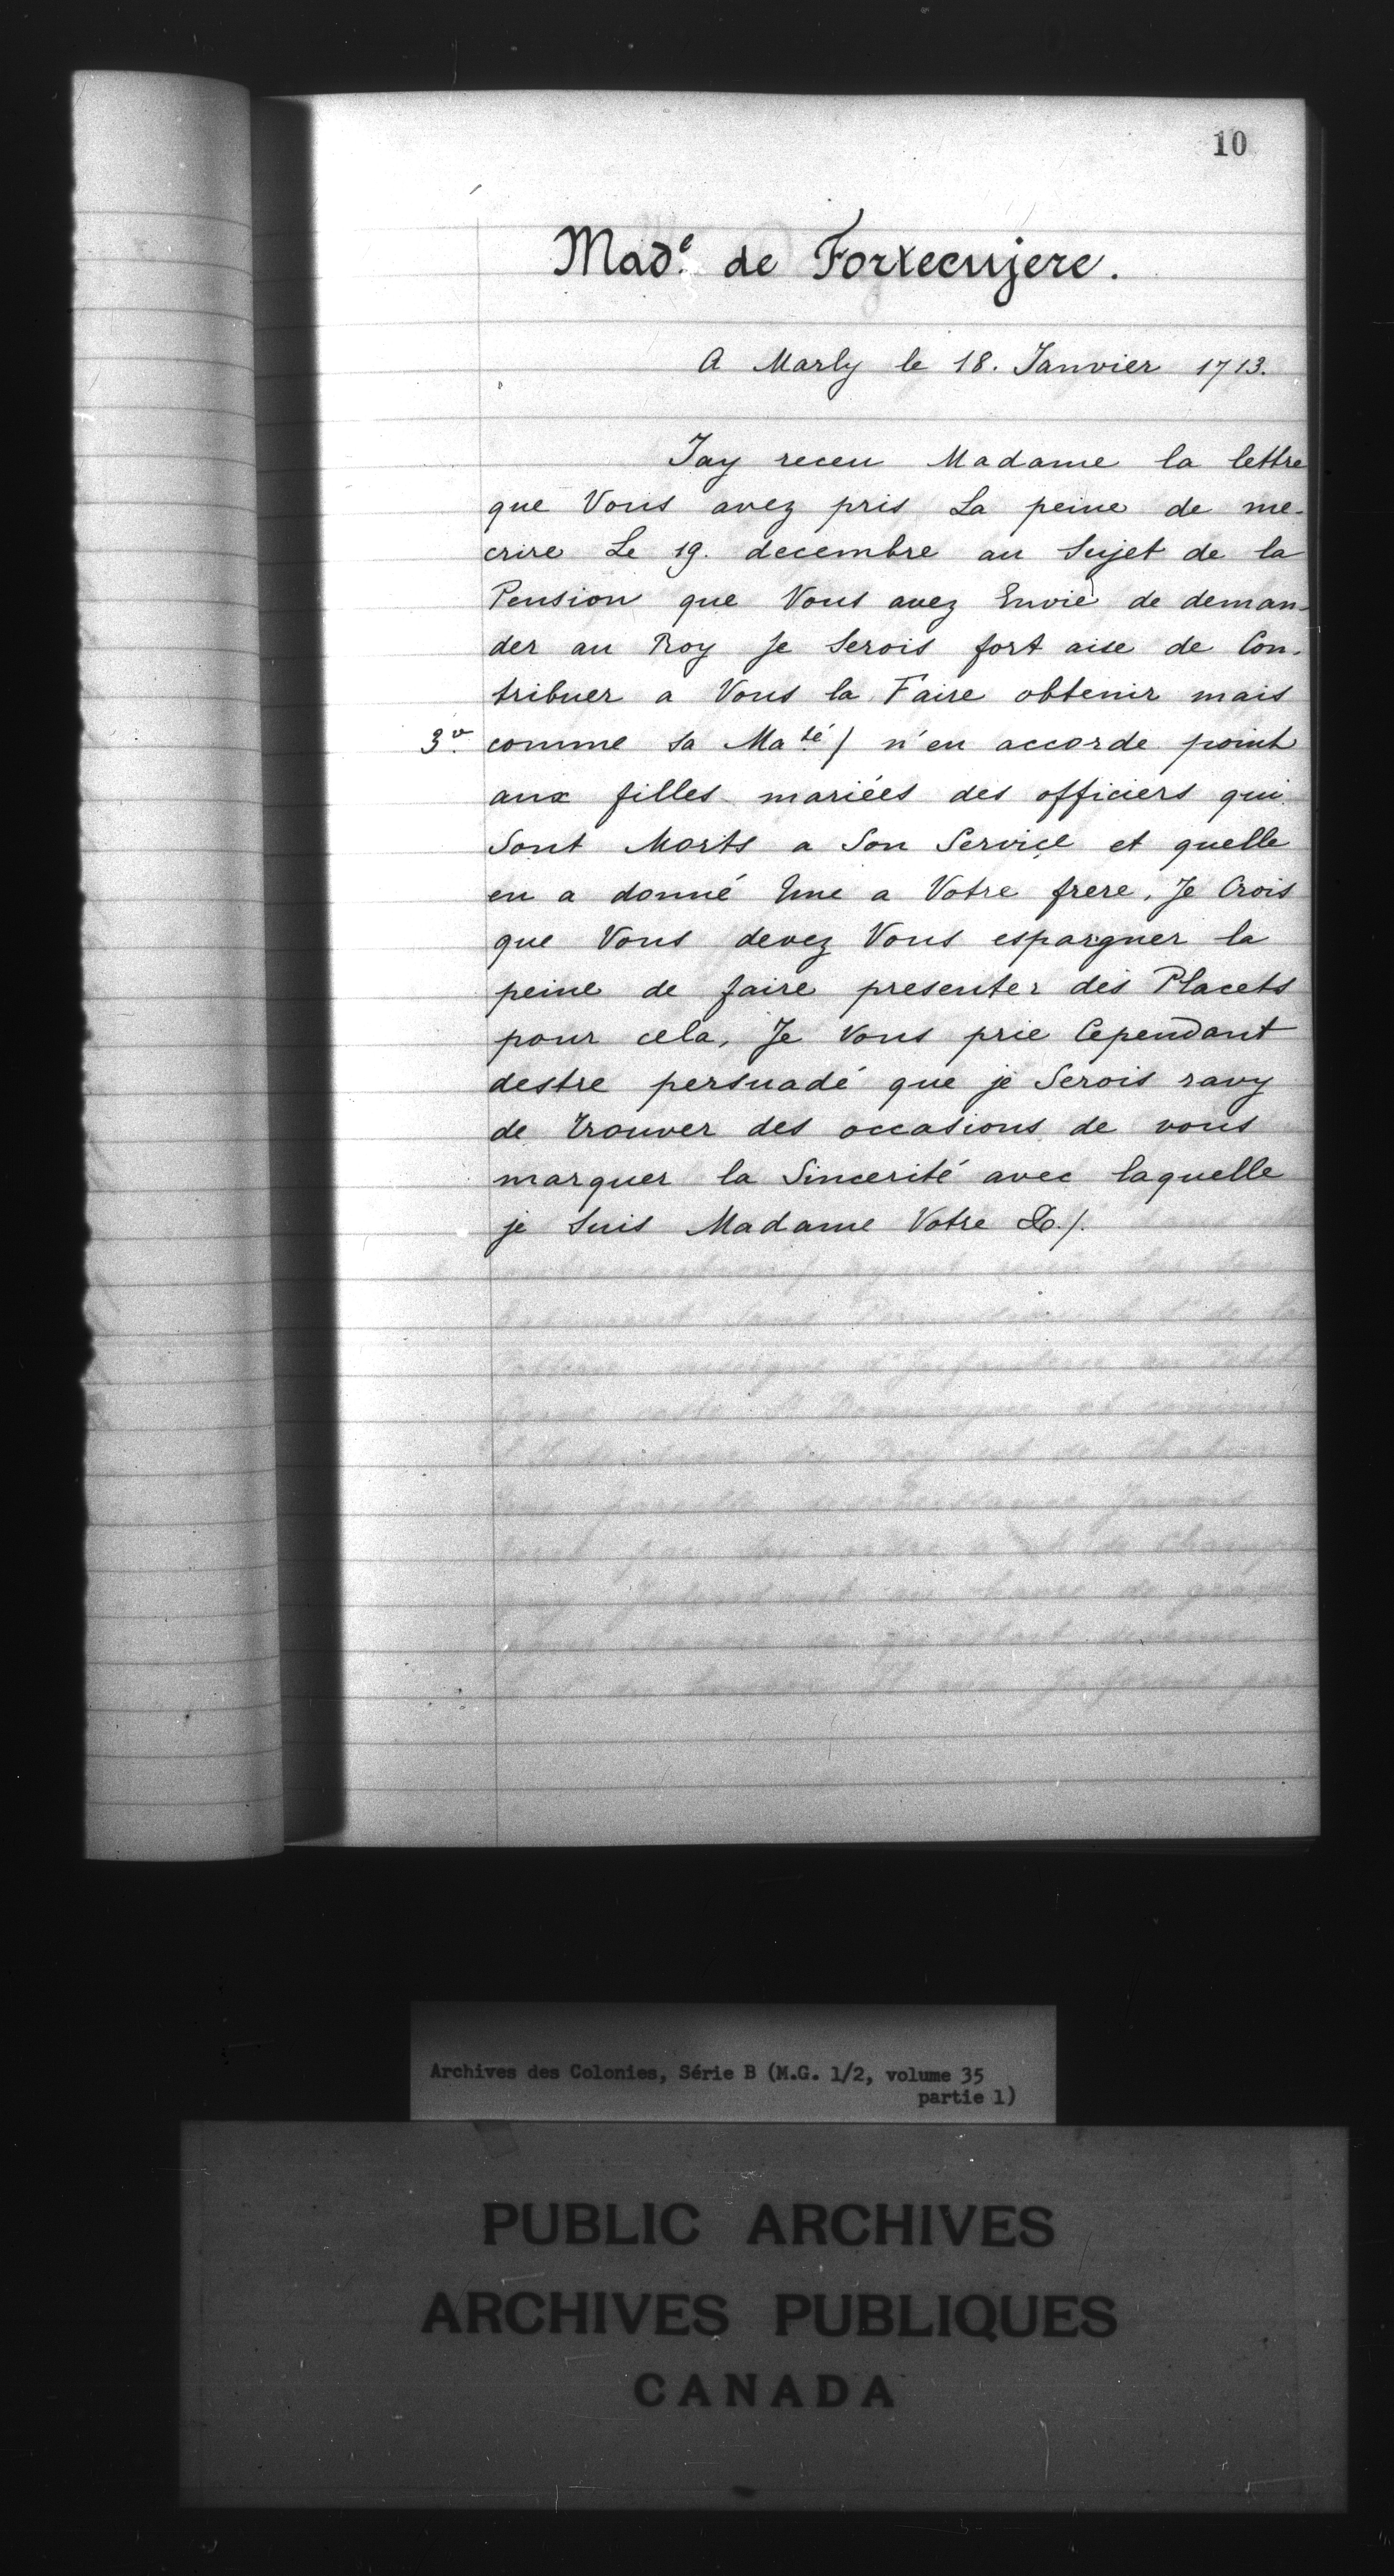 10
Made. de Fortecujere.
A Marly le 18. Janvier 1713.
Jay receu Madame la lettre
que Vous avez pris La peine de me-
crire Le 19. decembre au Sujet de la
Pension que Vous avez Envie de deman-
der au Roy Je Serois fort aise de Con-
tribuer a Vous la Faire obtenir mais
3v. comme sa Maté / n'en accorde point
aux filles mariées des officiers qui
Sont Morts a Son Service et quelle
en a donné Une a Votre frere, Je Crois
que Vous devez Vous espargner la
peine de faire presenter des Placets
pour cela, Je Vous prie Cependant
destre persuadé que je Serois ravy
de trouver des occasions de vous
marquer la Sincerité avec laquelle
je Suis Madame Votre &./.
Archives des Colonies, Série B (M.G. 1/2, volume 35
partie 1)
PUBLIC ARCHIVES
ARCHIVES PUBLIQUES
CANADA